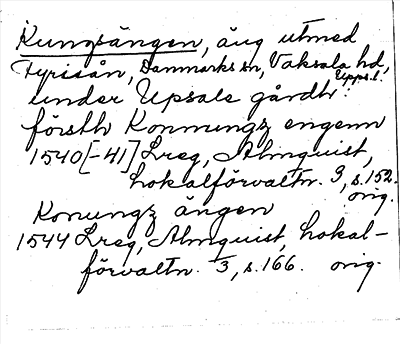 Kungsängen, äng utmed
Fyrisån, Danmarks sn, Vaksala hd,
Upps.l.
under Upsale gårdh:
försth Konnungz engenn
1540[-41] Lreg, Almquist,
Lokalförvaltn. 3, s. 152.
orig.
Konungz ängen
1544 Lreg, Almquist, Lokal-
förvaltn. 3, s. 166. orig.